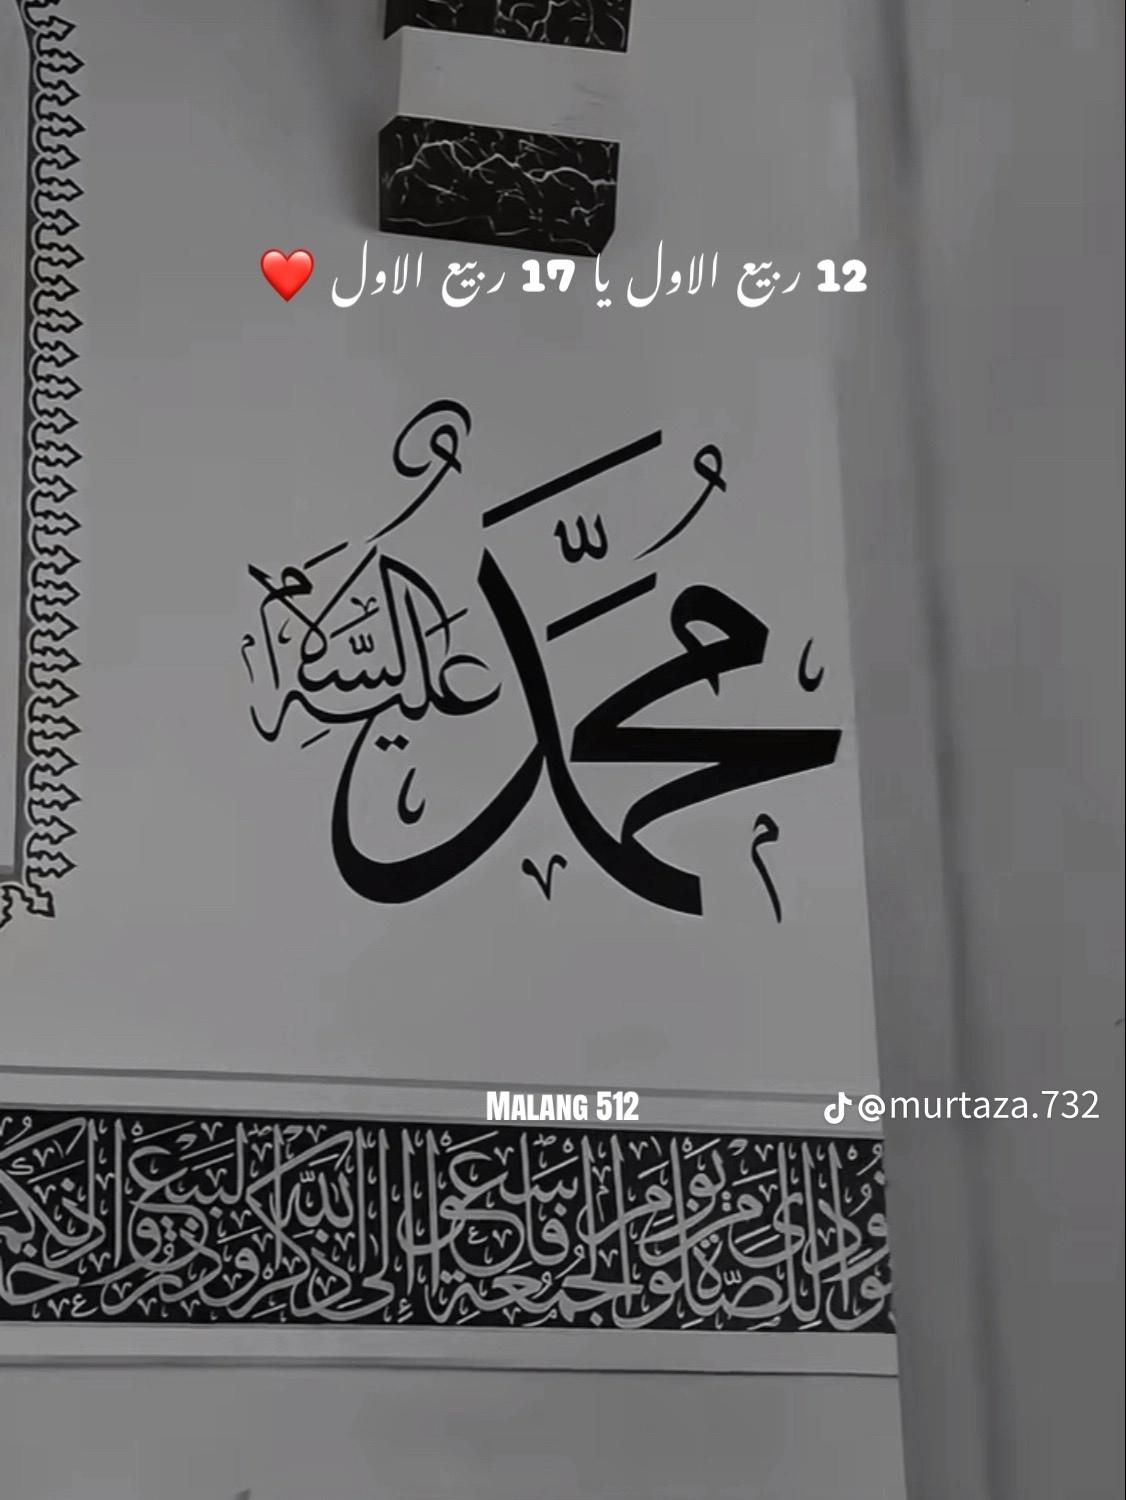 12 ربیع الاول یا 17 ربیع الاول ❤️
مُحَمَّد
عليه السلام
MALANG 512
@murtaza.732
نُودِىَ لِلصَّلوٰةِ مِن يَومِ الجُمُعَةِ فَاسعَوا إِلىٰ ذِكرِ اللَّهِ وَذَرُوا البَيعَ